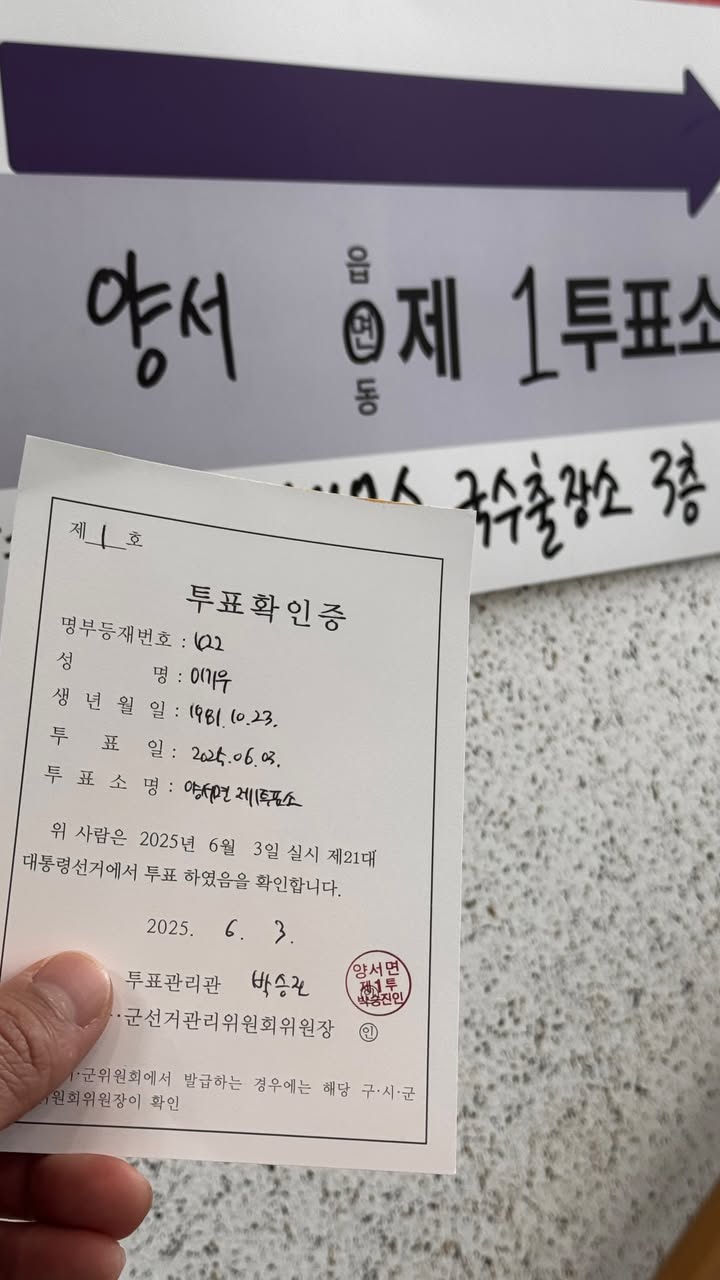 양서 읍 면 동 제 1 투표소
국수출장소 3층
제 1 호
투표확인증
명부등재번호 : 622
성 명 : 이기우
생 년 월 일 : 1981. 10. 23.
투 표 일 : 2025. 06. 03.
투 표 소 명 : 양서면 제1투표소
위 사람은 2025년 6월 3일 실시 제21대
대통령선거에서 투표 하였음을 확인합니다.
2025. 6. 3.
투표관리관 박승진
양서면
제1투
박승진인
군선거관리위원회위원장 인
·군위원회에서 발급하는 경우에는 해당 구·시·군
위원회위원장이 확인